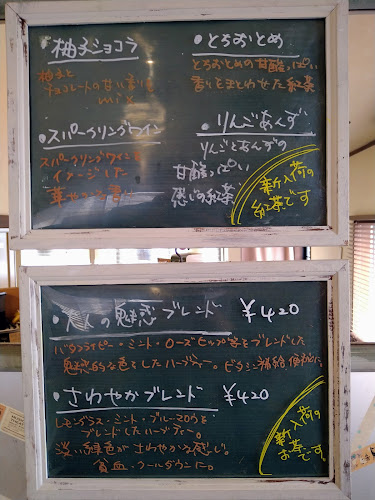 ・柚子ショコラ
柚子と
チョコレートの甘い香りを
mix
・スパークリングワイン
スパークリングワインを
イメージした
華やかな香り
・とちおとめ
とちおとめの甘酸っぱい
香りをまとわせた紅茶
・りんごあんず
りんごとあんずの
甘酸っぱい
感じの紅茶
新入荷の
紅茶です
・大人の魅惑ブレンド ¥420
バタフライピー・ミント・ローズヒップ等をブレンドした
魅惑的な色をしたハーブティー。ビタミン補給、便秘に。
・さわやかブレンド ¥420
レモングラス・ミント・ブルーマロウを
ブレンドしたハーブティー。
淡い緑色がさわやかな感じ。
貧血・クールダウンに。
新入荷の
お茶です。